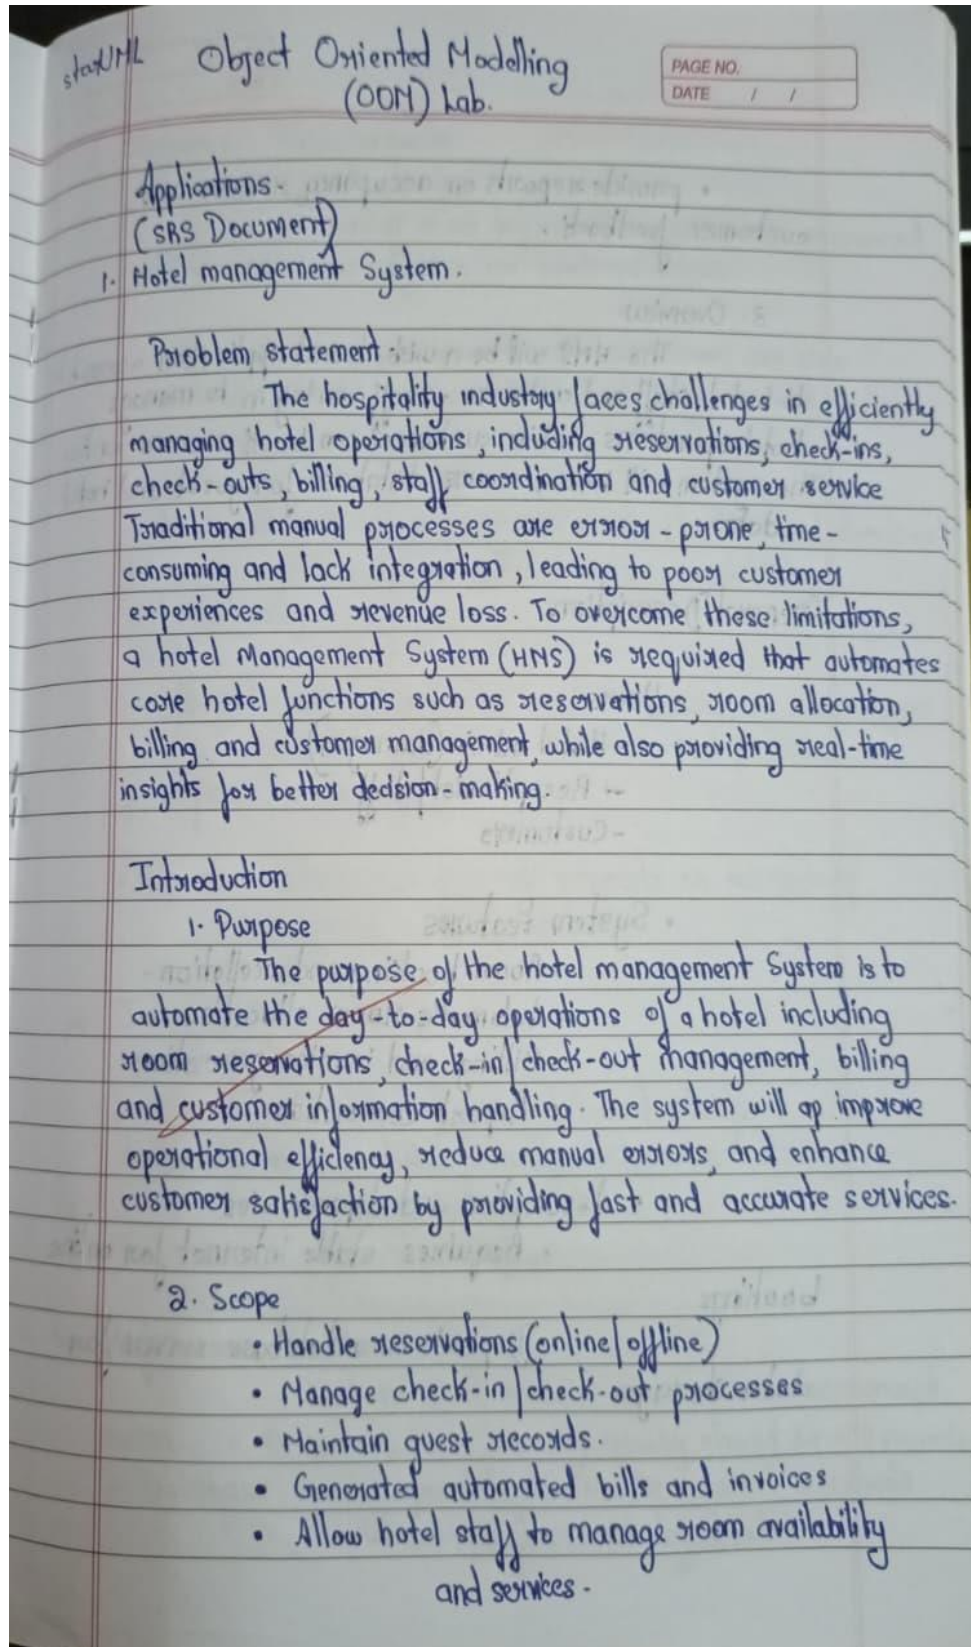 starUML
Object Oriented Modelling
(OOM) Lab.
PAGE NO.
DATE / /
Applications.
(SRS Document)
1. Hotel management System.
Problem statement.
The hospitality industry faces challenges in efficiently
managing hotel operations, including reservations, check-ins,
check-outs, billing, staff coordination and customer service
Traditional manual processes are error-prone, time-
consuming and lack integration, leading to poor customer
experiences and revenue loss. To overcome these limitations,
a hotel Management System (HMS) is required that automates
core hotel functions such as reservations, room allocation,
billing and customer management, while also providing real-time
insights for better decision-making.
Introduction
1. Purpose
The purpose of the hotel management System is to
automate the day-to-day operations of a hotel including
room reservations, check-in/check-out management, billing
and customer information handling. The system will op improve
operational efficiency, reduce manual errors, and enhance
customer satisfaction by providing fast and accurate services.
2. Scope
• Handle reservations (online/offline)
• Manage check-in/check-out processes
• Maintain guest records.
• Generated automated bills and invoices
• Allow hotel staff to manage room availability
and services.